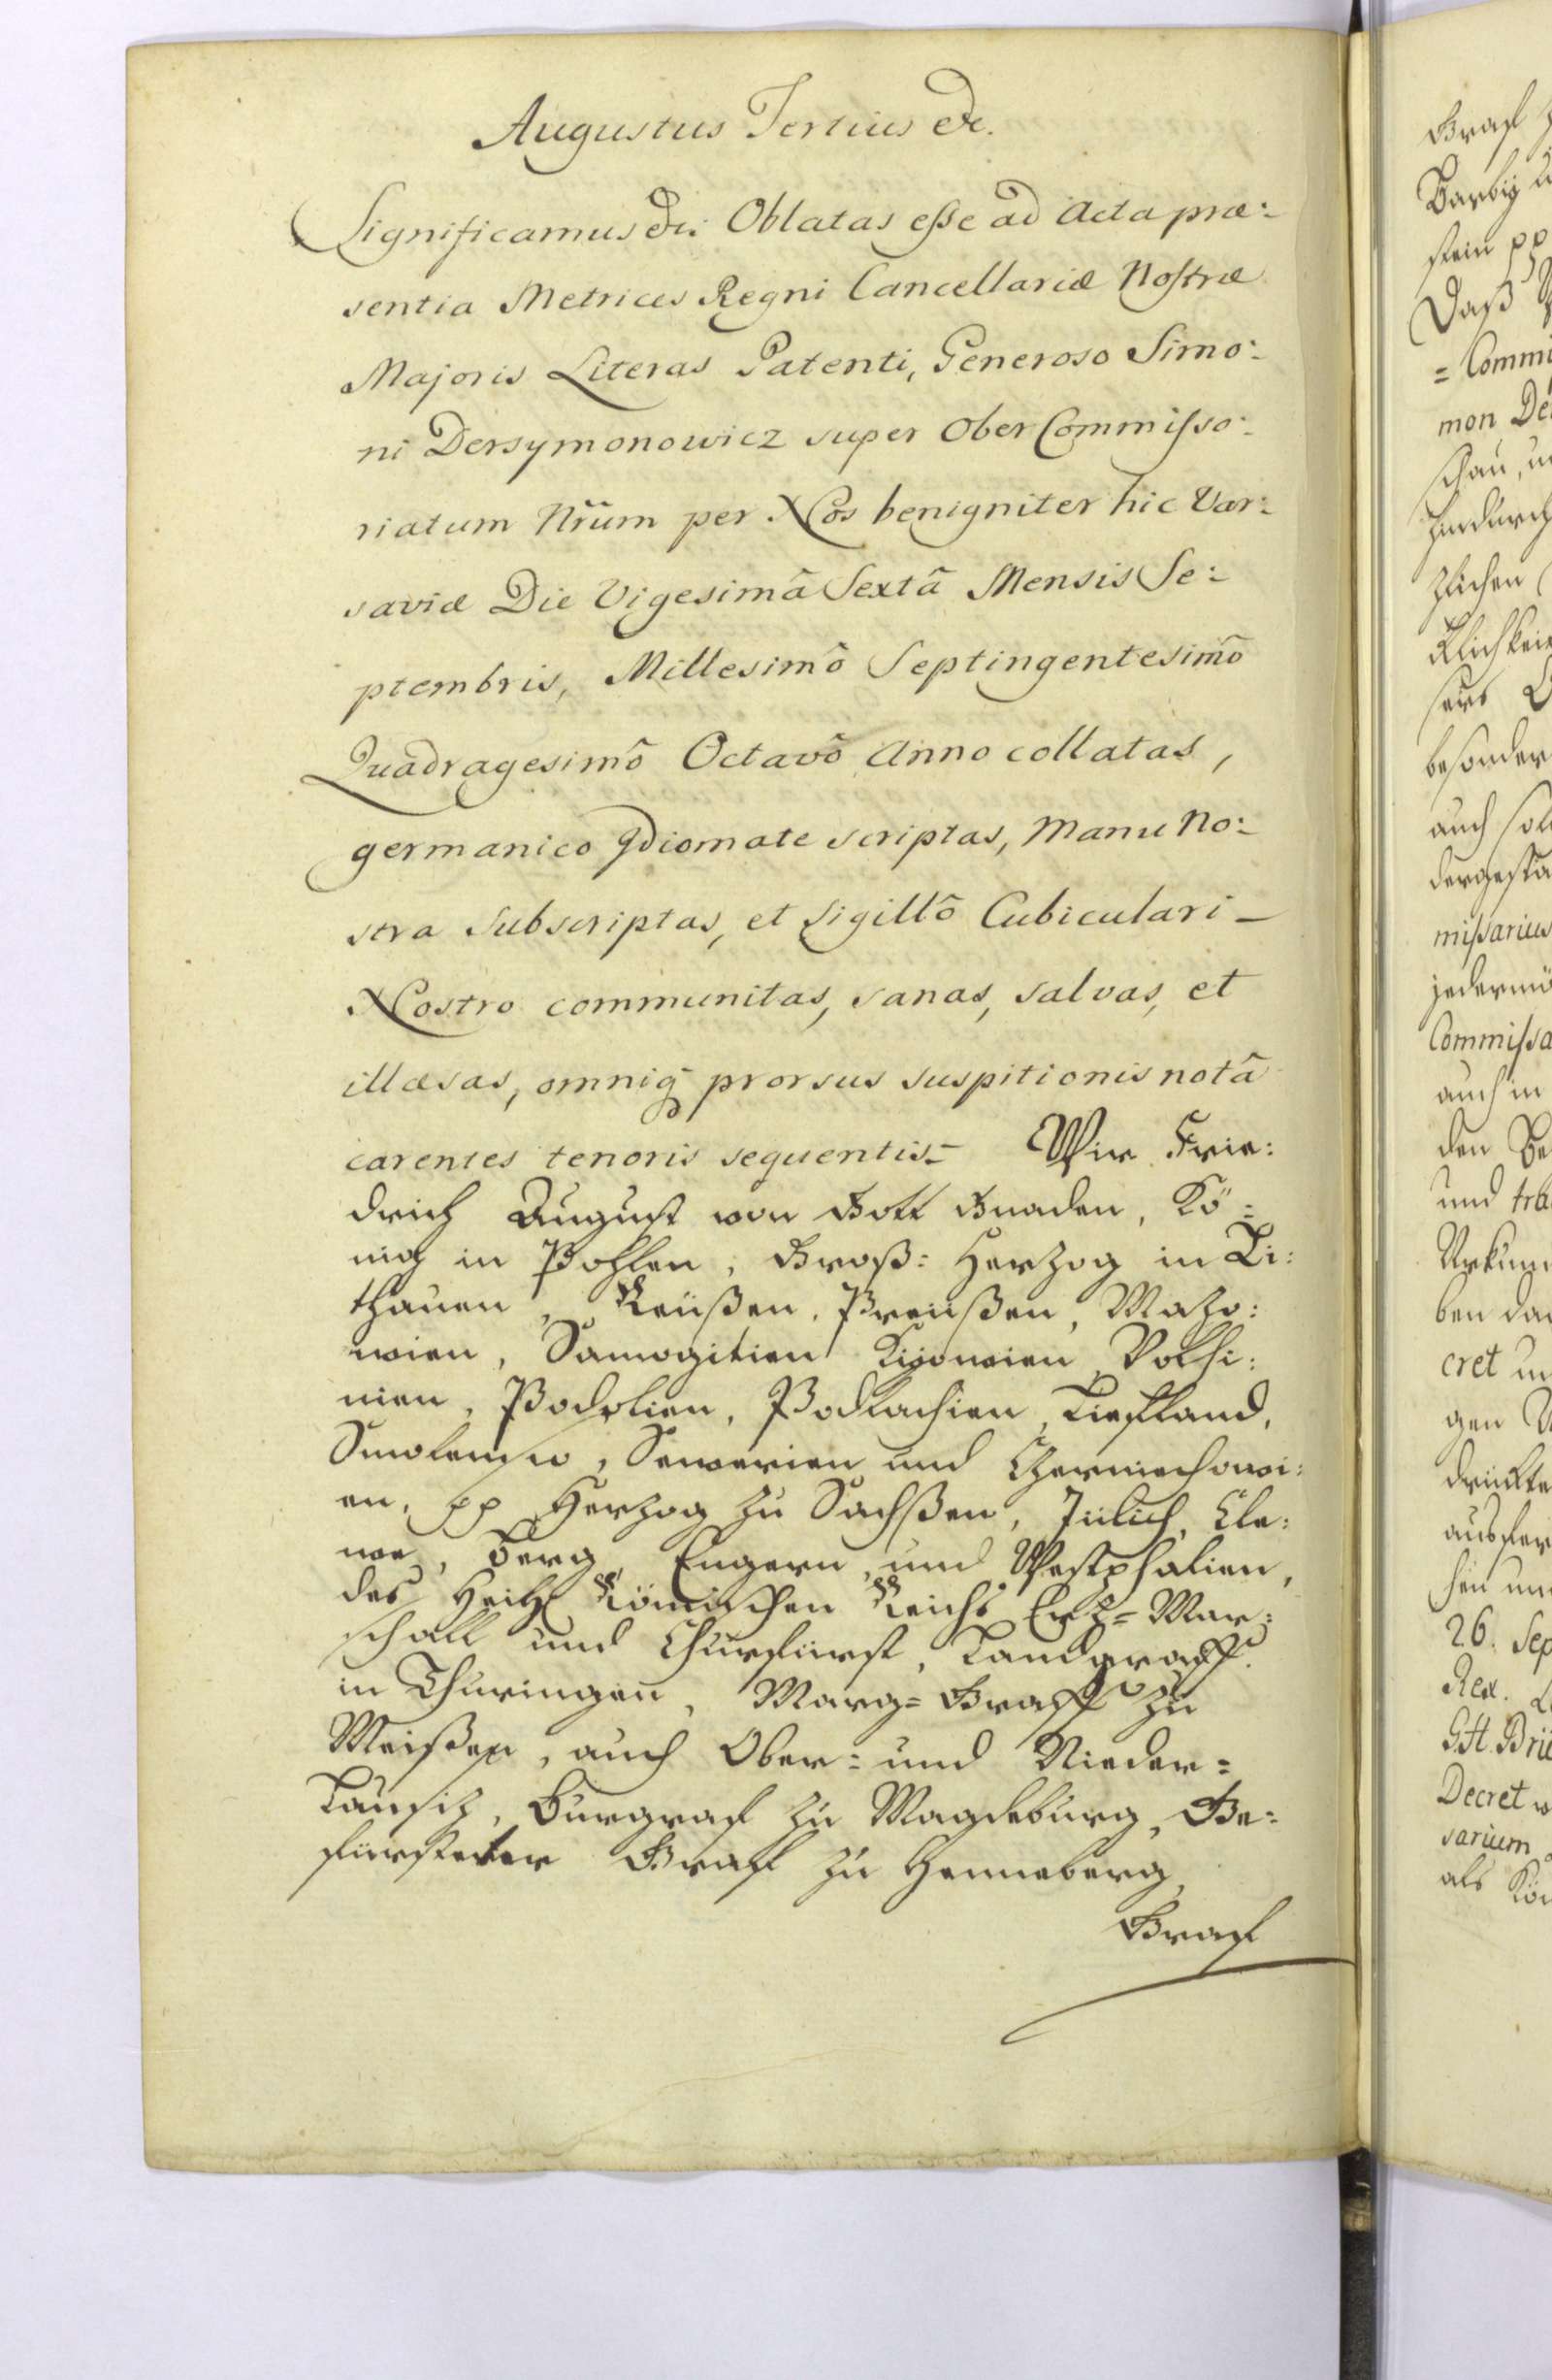 Augustus Tertius &c.
Significamus &c. Oblatas eſse ad Acta præ:
sentia Metrices Regni Cancellariæ Noſtræ
Majoris Literas Patenti, Generoso Simo:
ni Dersymonowicz super Ober Commiſso:
riatum Nr̃um per Nos benigniter hic Var:
saviæ Die Vigesimâ Sextâ Mensis Se:
ptembris, Millesimô Septingentesimô
Quadragesimô Octavô Anno collatas,
germanico Idiomate scriptas, Manu No:
stra Subscriptas, et Sigillô Cubiculari
Nostro communitas, sanas, salvas, et
illæsas, omniq̃ prorsus suspitionis notâ
carentes tenoris sequentis. Wir Frie:
drich August von Gott Gnaden, Kö:
nig in Pohlen, Groß: Herzog in Li:
thauen, Reüßen, Preüßen, Mazo:
wien, Samogitien Kijowien Volhi:
nien, Podolien, Podlachien, Liefland,
Smolensko, Sewerien und Czerniechowi:
en, pp Herzog zu Sachßen, Jülich, Cle:
we, Berg, Engern, und Westphalien,
des Heil. Römischen Reichs Ertz=Mar:
schall und Churfürst, Landgraff
in Thuringen, Marg=Graff zu
Meißen, auch Ober= und Nieder=
Lausitz, Burgraf zu Magdeburg, Ge:
fürsteter Graf zu Henneberg,
Graf
Graf
Barbij
stein pp
Daß
=Commi
mon De
schau, u
hindurch
zlichen
besonder
auch sol
dergesta
miſsarius
Commiſsa
auch in
den Be
und tra
Urkun
ben da
cret un
gen
drückte
ausfer
hen un
26. Sep
Rex.
G.H. Brü
Decret
sarium
als Kö